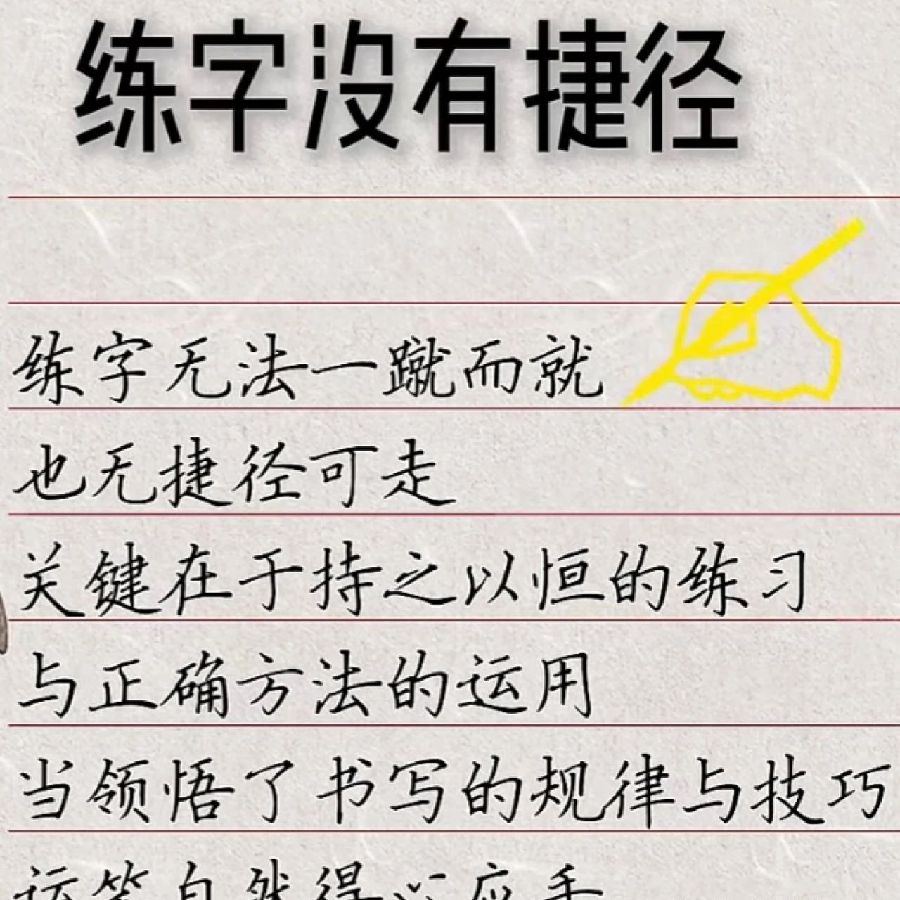 练字没有捷径
练字无法一蹴而就
也无捷径可走
关键在于持之以恒的练习
与正确方法的运用
当领悟了书写的规律与技巧
运笔自然得心应手